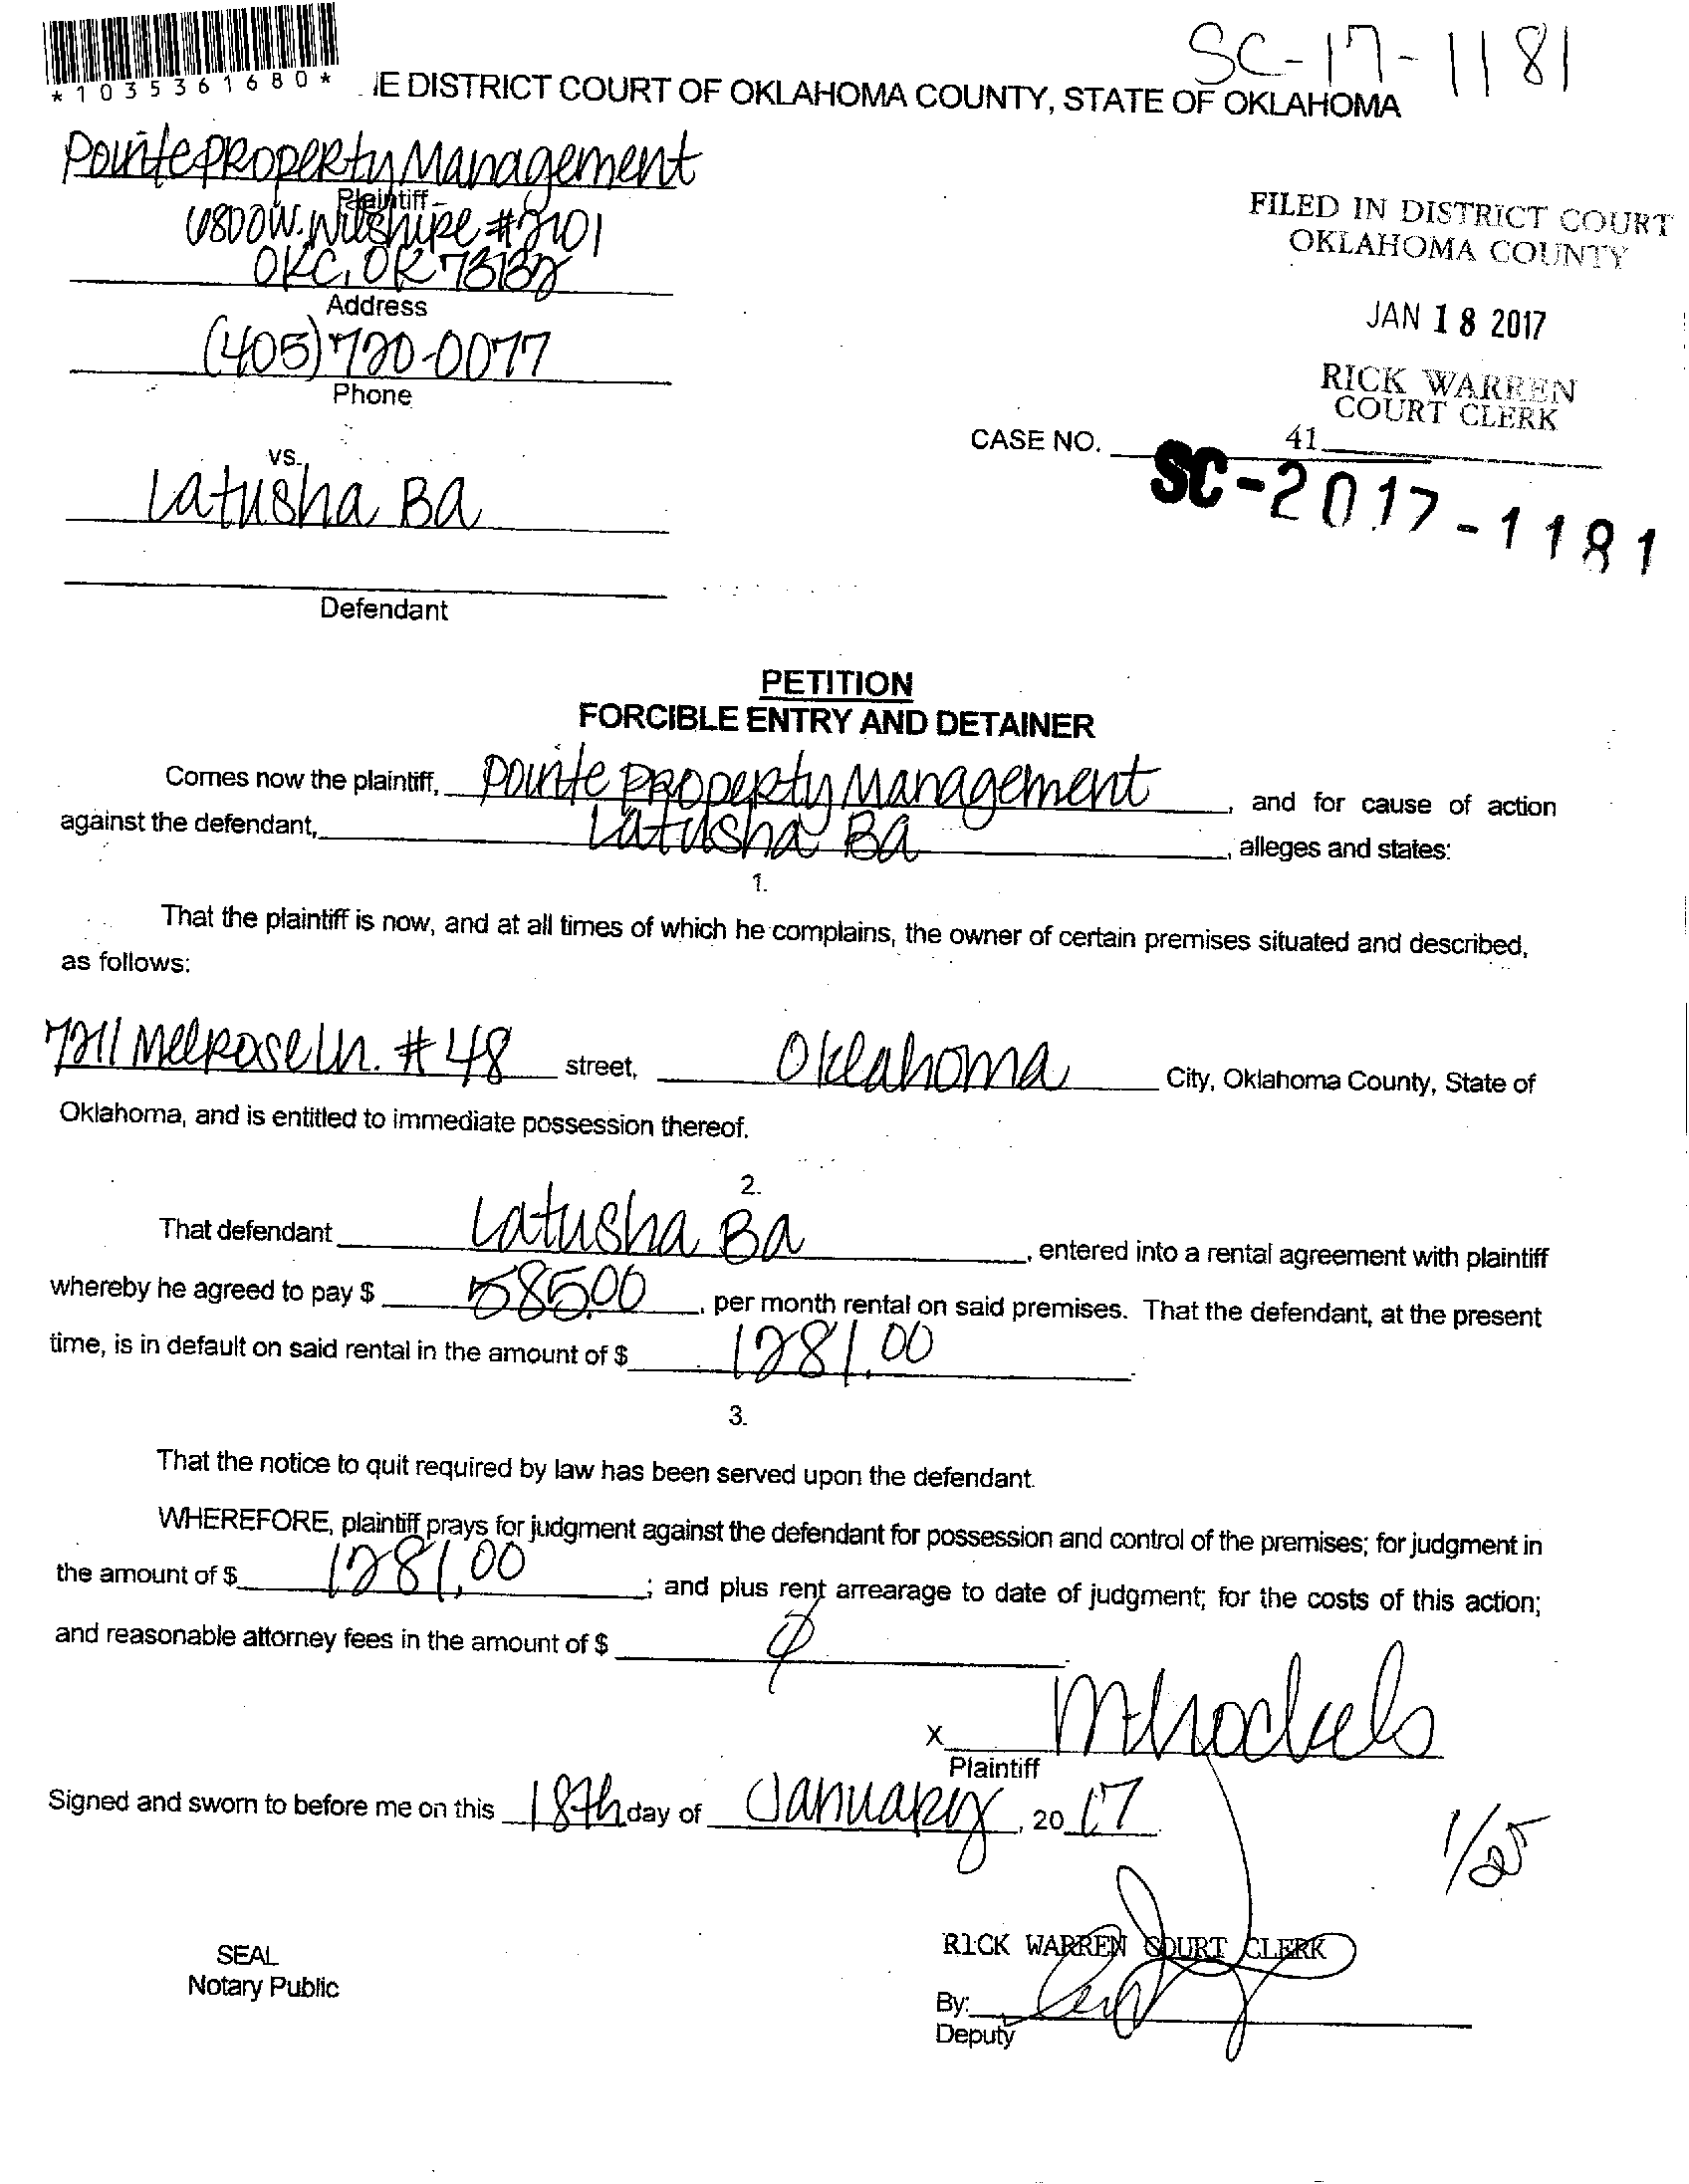 SC-17-1181
*1035361680*
IE DISTRICT COURT OF OKLAHOMA COUNTY, STATE OF OKLAHOMA
Pointe Property Management
Plaintiff
6800 W. Wilshire #2101
OKC, OK 73132
Address
(405) 720-0077
Phone
FILED IN DISTRICT COURT
OKLAHOMA COUNTY
JAN 18 2017
RICK WARREN
COURT CLERK
41
CASE NO.
SC-2017-1181
vs.
Latusha Ba
Defendant
PETITION
FORCIBLE ENTRY AND DETAINER
Comes now the plaintiff, Pointe Property Management, and for cause of action
against the defendant, Latusha Ba, alleges and states:
1.
That the plaintiff is now, and at all times of which he complains, the owner of certain premises situated and described,
as follows:
7211 Melrose Ln. #48 street, Oklahoma City, Oklahoma County, State of
Oklahoma, and is entitled to immediate possession thereof.
2.
That defendant Latusha Ba, entered into a rental agreement with plaintiff
whereby he agreed to pay $ 585.00, per month rental on said premises. That the defendant, at the present
time, is in default on said rental in the amount of $ 1281.00.
3.
That the notice to quit required by law has been served upon the defendant.
WHEREFORE, plaintiff prays for judgment against the defendant for possession and control of the premises; for judgment in
the amount of $ 1281.00; and plus rent arrearage to date of judgment; for the costs of this action;
and reasonable attorney fees in the amount of $ φ
X
Plaintiff
Signed and sworn to before me on this 18th day of January, 20 17.
1/25
SEAL
Notary Public
RICK WARREN COURT CLERK
By:
Deputy